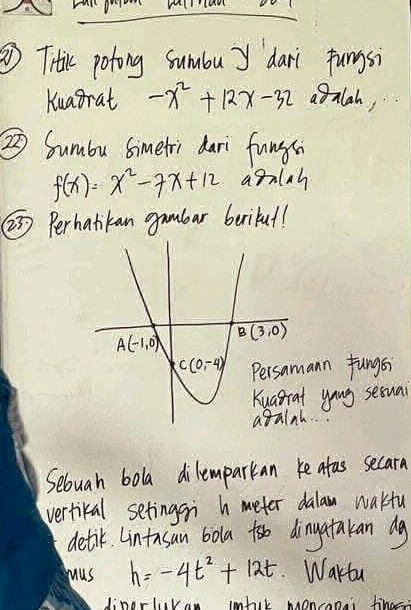 21) Titik potong sumbu Y dari fungsi
Kuadrat -x² + 12x - 32 adalah, ...
22) Sumbu simetri dari fungsi
f(x) = x² - 7x + 12 adalah
23) Perhatikan gambar berikut!
A(-1,0)
B(3,0)
C(0,-4)
Persamaan fungsi
Kuadrat yang sesuai
adalah...
Sebuah bola dilemparkan ke atas secara
vertikal setinggi h meter dalam waktu
detik. Lintasan bola tsb dinyatakan dg
mus h = -4t² + 12t. Waktu
diperlukan untuk mencapai tinggi